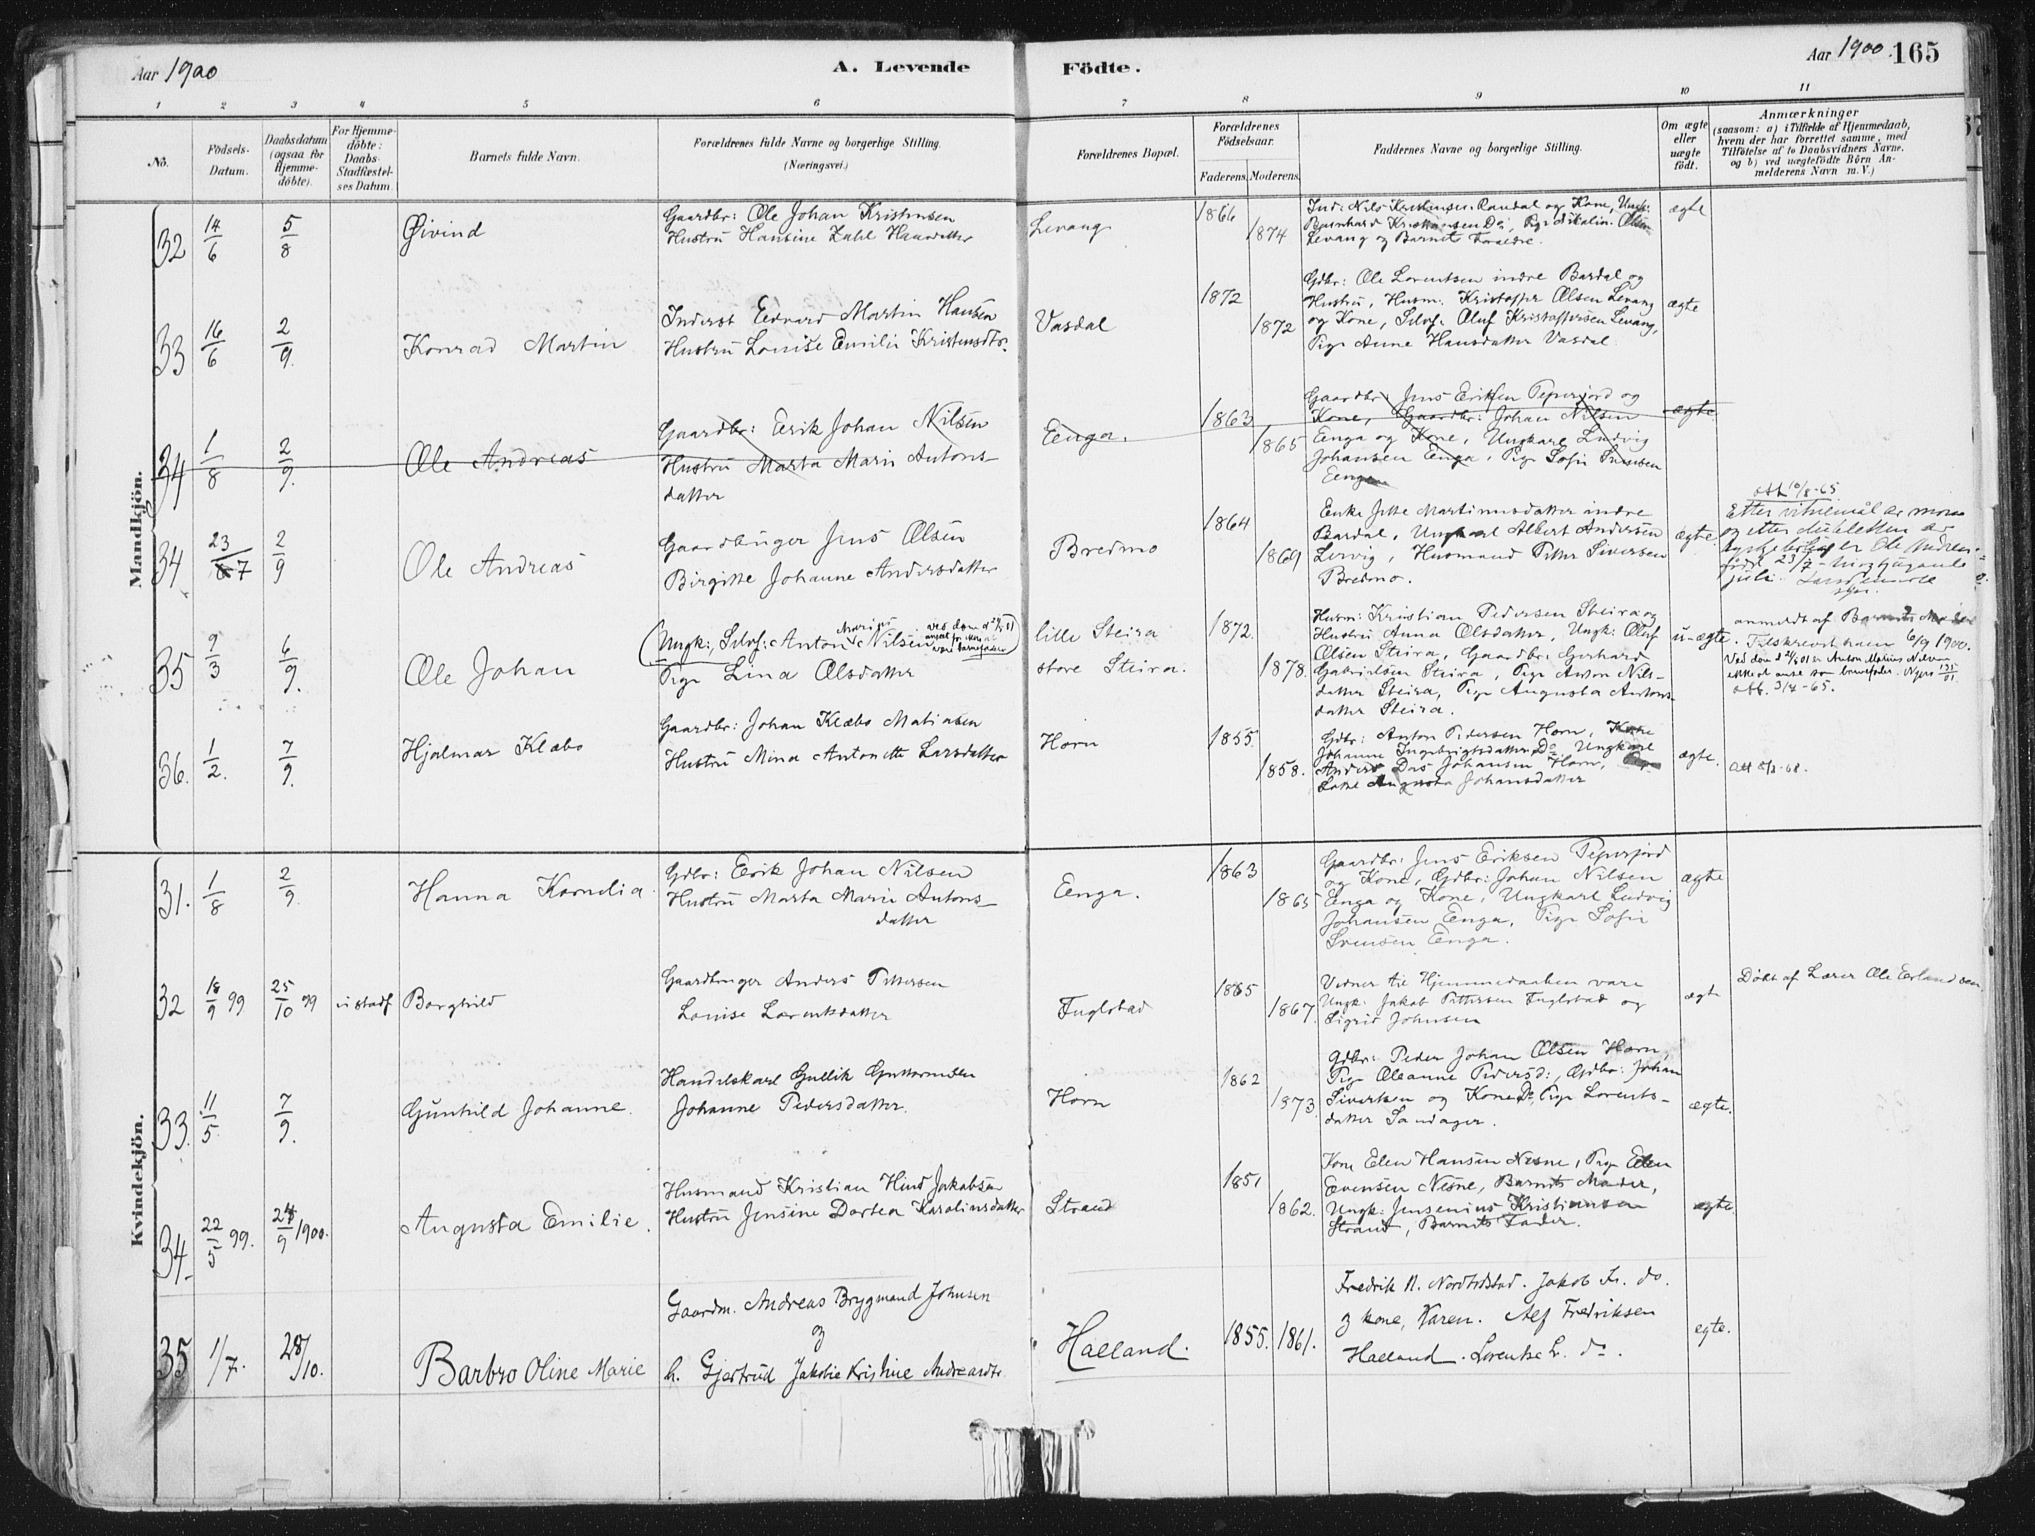 Aar 1900
A. Levende
Födte.
Aar 1900. 165
1 2 3 4 5 6 7 8 9 10 11
No.
Födsels-
Datum.
Daabsdatum
(ogsaa for
Hjemme-
döbte).
For Hjemme-
döbte:
Daabs-
Stadfæstel-
ses Datum.
Barnets fulde Navn.
Forældrenes fulde Navne og borgerlige Stilling.
(Næringsvei.)
Forældrenes Bopæl.
Forældrenes
Födselsaar.
Faderens. Moderens.
Faddernes Navne og borgerlige Stilling.
Om ægte
eller
uægte
födt.
Anmærkninger
(saasom: a) i Tilfælde af Hjemmedaab,
hvem der har forrettet samme, med
Tilföielse af to Daabsvidners Navne.
og b) ved uægtefödte Börn An-
melderens Navn m. V.)
Mandkjön.
32 14/6 5/8 Øivind
Gaardbr: Ole Johan Kristensen
Hustru Hansine Zahl
Levang
1866
1874
Ind: Nils Kristensen Randal og Kone, Ungk:
Levang og Barnets Forældre.
ægte
33 16/6 2/9 Konrad Martin
Inderst Edvard Martin Hansen
Hustru Louise Emilie Kristensdtr.
Vasdal
1872
1872
Gdbr: Ole Lorentsen indre Bardal og
Hustru, Husm. Kristoffer Olsen Levang
og Kone, Selvf. Oluf Kristoffersen Levang,
Pige Anne Hansdatter Vasdal
ægte
34 1/8 2/9 Ole Andreas
Gaardbr: Erik Johan Nilsen
Hustru Marta Marie Antons-
datter
Enga.
1863
1865
Gaardbr: Jens Eriksen Peperfjord og
Kone, Gaardbr: Johan Nilsen
Enga og Kone, Ungkarl Ludvig
Johansen Enga, Pige Sofie Svensen
Enga
ægte
34 23/7 2/9 Ole Andreas
Gaardbruger Jens Olsen
Birgitte Johanne Andersdatter
Bredmo
1864
1869
Enke Jitte Martinusdatter indre
Bardal, Ungkarl Albert Andersen
Lervig, Husmand Petter Sivertsen
Bredmo.
ægte
10/8-65
Etter vitnemål av mora
og etter dubletten av
er Ole Andreas
født 23/7
juli.
35 9/3 6/9. Ole Johan
(Ungk: Selvf: Anton Marius Nilsen
Pige Lina Olsdatter
lille Steira
store Steira.
1872.
1878.
Husm: Kristian Pedersen Steira og
Hustru Anna Olsdatter, Ungk: Oluf
Olsen Steira, Gaardbr: Gerhard
Gabrielsen Steira, Pige Anton Nils-
datter Steira, Pige Augusta Antons-
datter Steira.
u-ægte.
anmeldt af Barnets Moder
6/9 1900.
Ved dom d 2/5 01 er Anton Marius Nilsen
ikke at anse som barnefader.
obb. 3/4-65.
36. 1/2. 7/9. Hjalmar Klæbo
Gaardbr: Johan Klæbo Matiasen
Hustru Mina Antonette Larsdatter
Horn
1855.
1858.
Gdbr: Anton Pedersen Horn, Kone
Johanne Ingebrigtsdatter Do Ungkarl
Anders Das Johansen Horn, Pige
Augusta Johansdatter
ægte.
Kvindekjön.
31. 1/8 2/9. Hanna Kornelia.
Gdbr: Erik Johan Nilsen
Hustru Marta Marie Antons-
datter
Enga.
1863
1865
Gaardbr: Jens Eriksen Peperfjord
og Kone, Gdbr: Johan Nilsen
Enga og Kone, Ungkarl Ludvig
Johansen Enga, Pige Sofie
Svensen Enga.
ægte
32 18/9 99 25/10 99 u stadf Borghild
Gaardbruger Anders Pettersen
Louise Lorentsdatter
Fuglstad
1865
1867.
Vidner til Hjemmedaaben vare
Ungk: Jakob Pettersen Fuglstad og
Sigrid Johnsen
ægte
Döbt af Lærer Ole Erlandsen
33. 11/5. 7/9. Gunhild Johanne.
Handelskarl Gullik Guttormsen
Johanne Pedersdatter.
Horn
1862
1873.
Gdbr: Peder Johan Olsen Horn,
Pige Oleanne Pedersd:, Gdbr: Johan
Sivertsen og Kone Do, Pige Lorents-
datter Sandager.
ægte.
34. 22/5 99. 24/9 1900. Augusta Emilie.
Husmand Kristian Hind Jakobsen
Hustru Jensine Dortea Karolinsdatter
Strand
1851
1862.
Kone Elen Hansen Nesne, Pige Elen
Evensen Nesne, Barnets Moder,
Ungk: Jensenius Kristiansen
Strand, Barnets Fader.
ægte
35 1/7. 28/10. Barbro Oline Marie
Gaardm. Andreas Brygmand Johnsen
og
h. Gjertrud Jakobie Kristine Andreasdtr
Halland.
1855. 1861.
Fredrik N. Nordfidstad. Jakob Fr. do.
og kone, Karen. Alf Fredriksen
Halland. Lorentse L. do.
egte.